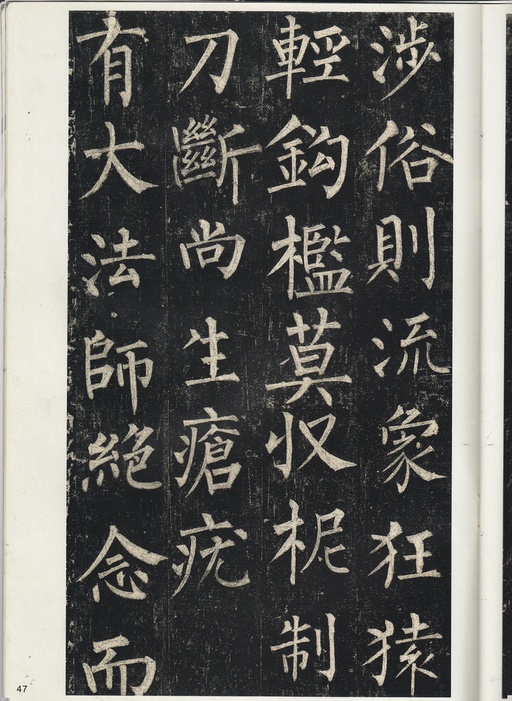 涉俗則流象狂猿
輕鈎檻莫収柅制
刀斷尚生瘡疣
有大法師絕念而
47